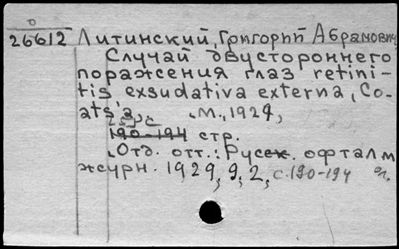 26612 Литинский, Григорий Абрамович
Случай двустороннего
поражения глаз retini-
tis exsudativa externa, Co-
ats'a. М., 1929,
190-194 стр.
Отд. отт.: Русск. офталм
журн. 1929, 9, 2, с. 190-194